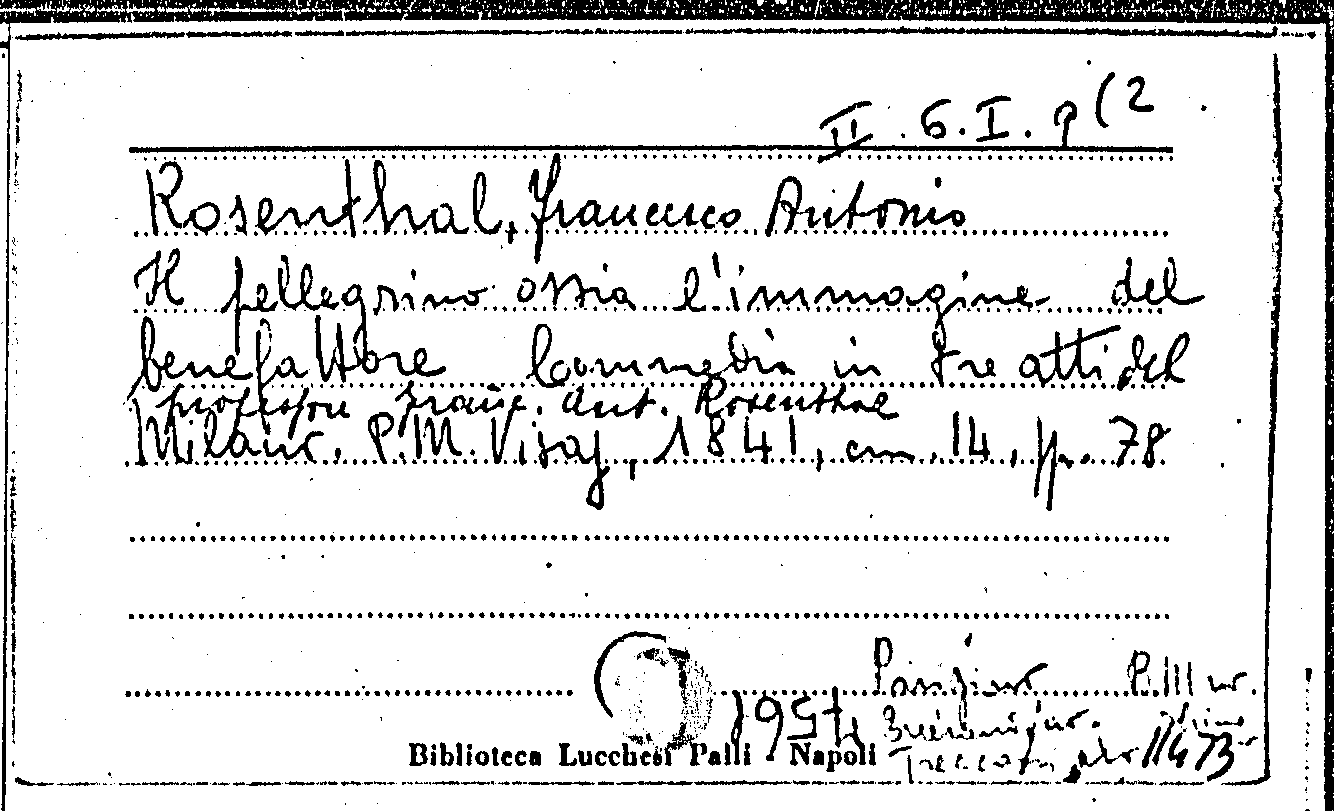 II . 6 . I . 9 (2
Rosenthal, Francesco Antonio
Il pellegrino ossia l'immagine del
benefattore Commedia in tre atti del
professore Franc. Ant. Rosenthal
Milano. P.M. Visaj, 1841, cm. 14, pp. 78
Biblioteca Lucchesi Palli - Napoli